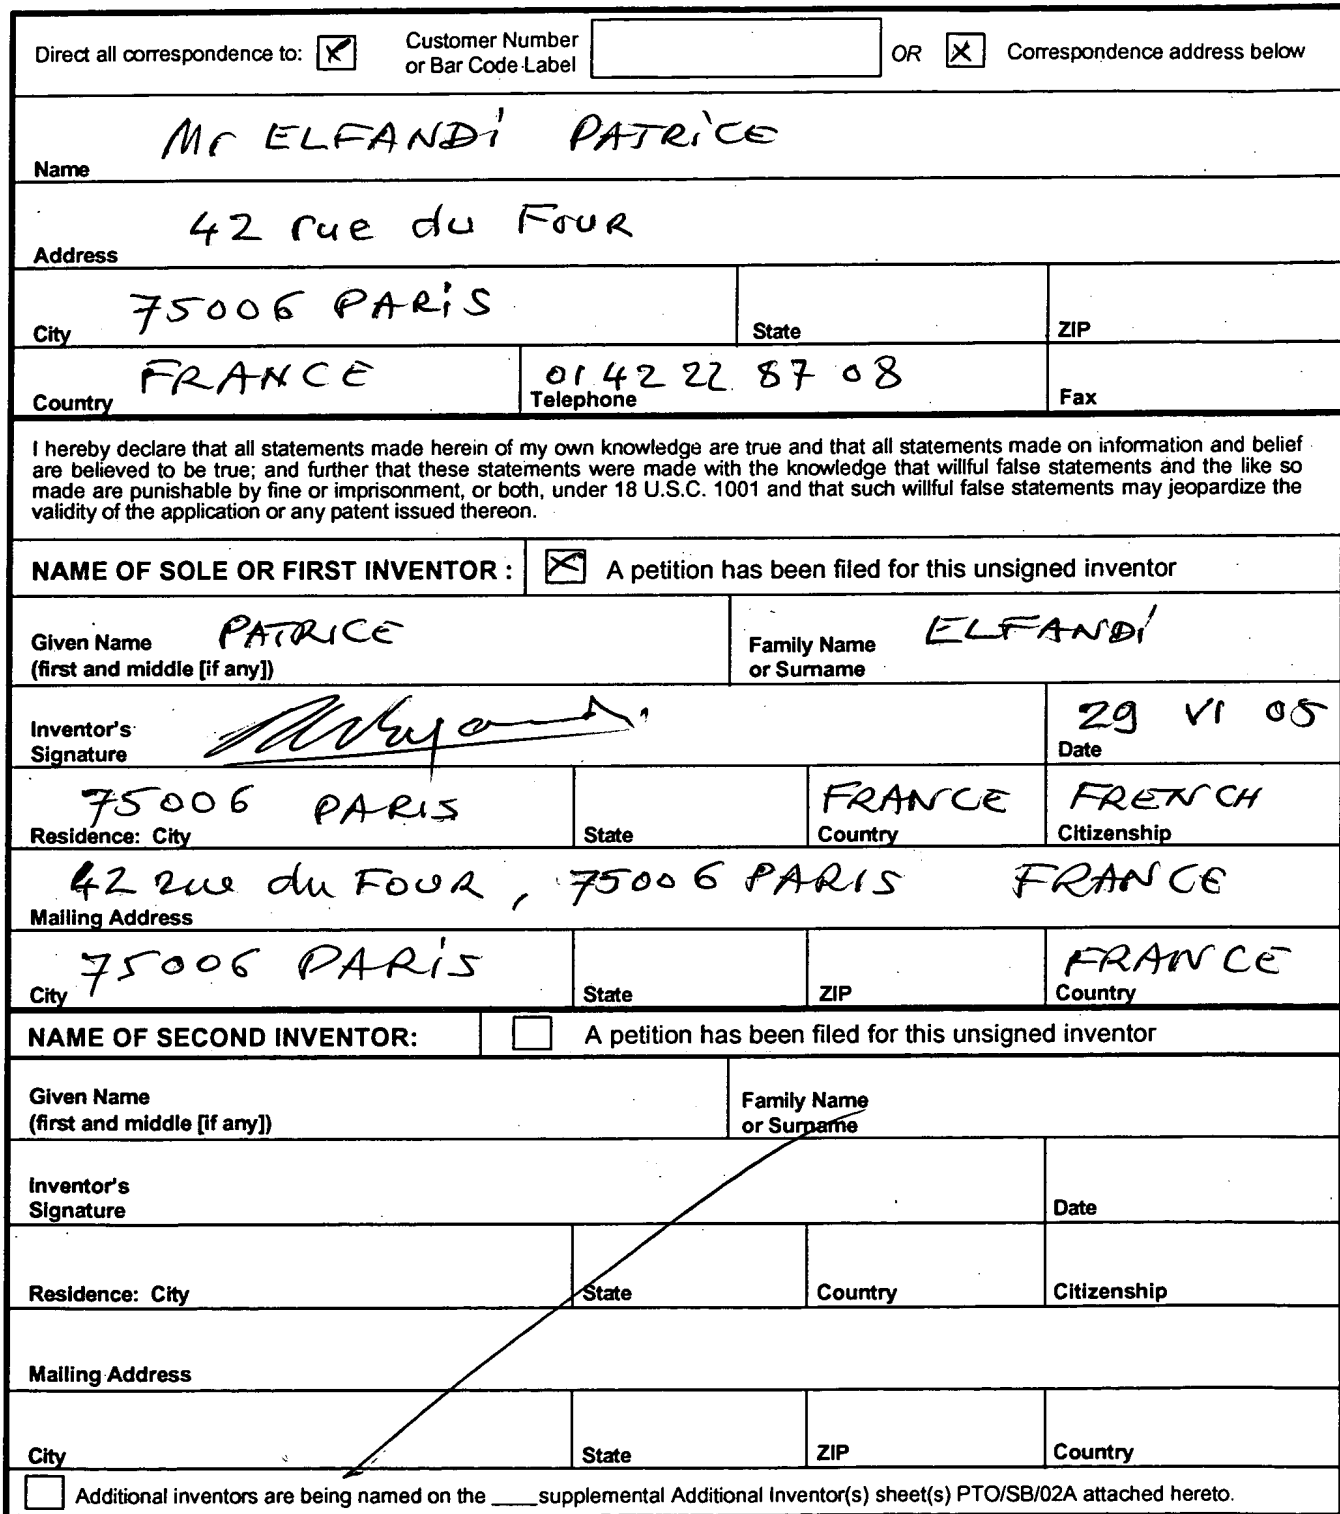 Direct all correspondence to: Customer Number or Bar Code Label OR Correspondence address below
Mr ELFANDi PATRiCE
Name
42 rue du FOUR
Address
75006 PARiS
City State ZIP
FRANCE 01 42 22 87 08
Country Telephone Fax
I hereby declare that all statements made herein of my own knowledge are true and that all statements made on information and belief
are believed to be true; and further that these statements were made with the knowledge that willful false statements and the like so
made are punishable by fine or imprisonment, or both, under 18 U.S.C. 1001 and that such willful false statements may jeopardize the
validity of the application or any patent issued thereon.
NAME OF SOLE OR FIRST INVENTOR : A petition has been filed for this unsigned inventor
Given Name PATRICE Family Name ELFANDi
(first and middle [if any]) or Surname
29 VI 05
Inventor's
Signature Date
75006 PARIS FRANCE FRENCH
Residence: City State Country Citizenship
42 rue du FOUR, 75006 PARIS FRANCE
Mailing Address
75006 PARiS FRANCE
City State ZIP Country
NAME OF SECOND INVENTOR: A petition has been filed for this unsigned inventor
Given Name Family Name
(first and middle [if any]) or Surname
Inventor's
Signature Date
Residence: City State Country Citizenship
Mailing Address
City State ZIP Country
Additional inventors are being named on the ____supplemental Additional Inventor(s) sheet(s) PTO/SB/02A attached hereto.